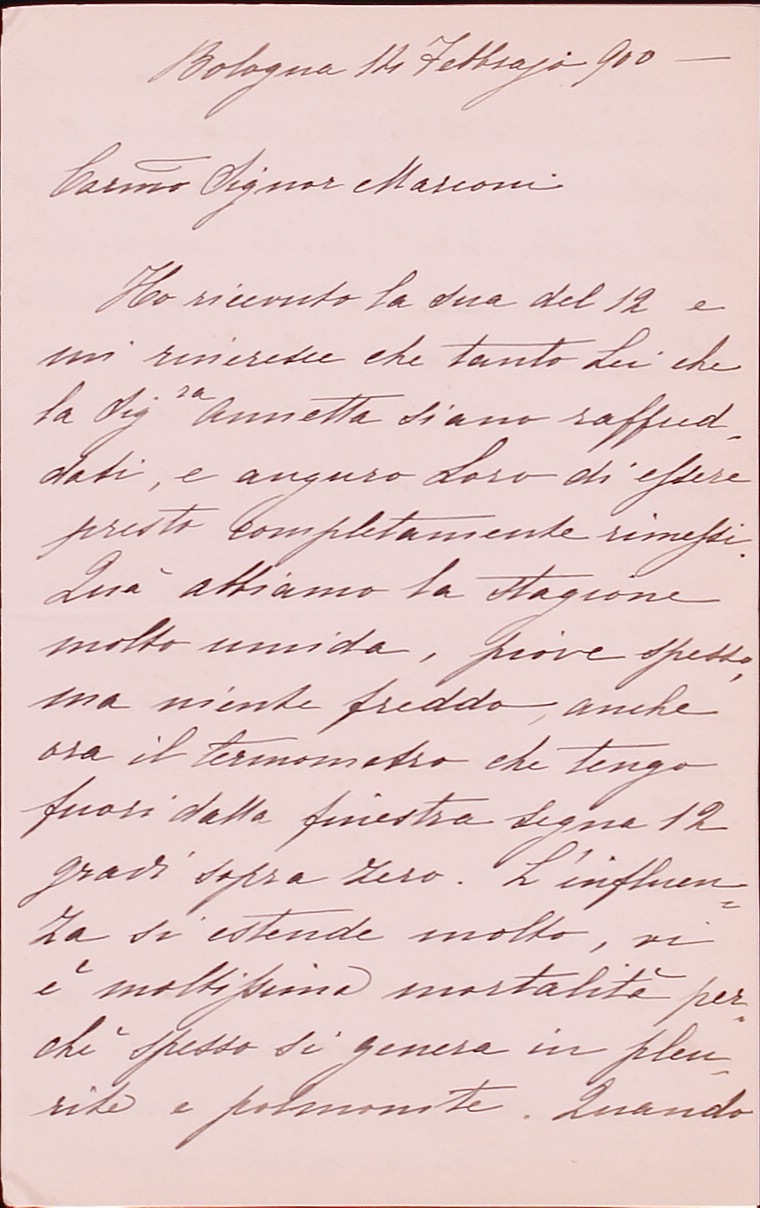 Bologna 14 Febbrajo 900 —
Carmo Signor Marconi
Ho ricevuto la sua del 12 e
mi rincresce che tanto Lei che
la Sigra Annetta siano raffred-
dati, e auguro Loro di essere
presto completamente rimessi.
Quà abbiamo la stagione
molto umida, piove spesso,
ma niente freddo, anche
ora il termometro che tengo
fuori dalla finestra segna 12
gradi sopra zero. L'influen=
za si estende molto, vi
è moltissima mortalità per=
chè spesso si genera in pleu-
rite e polmonite. Quando